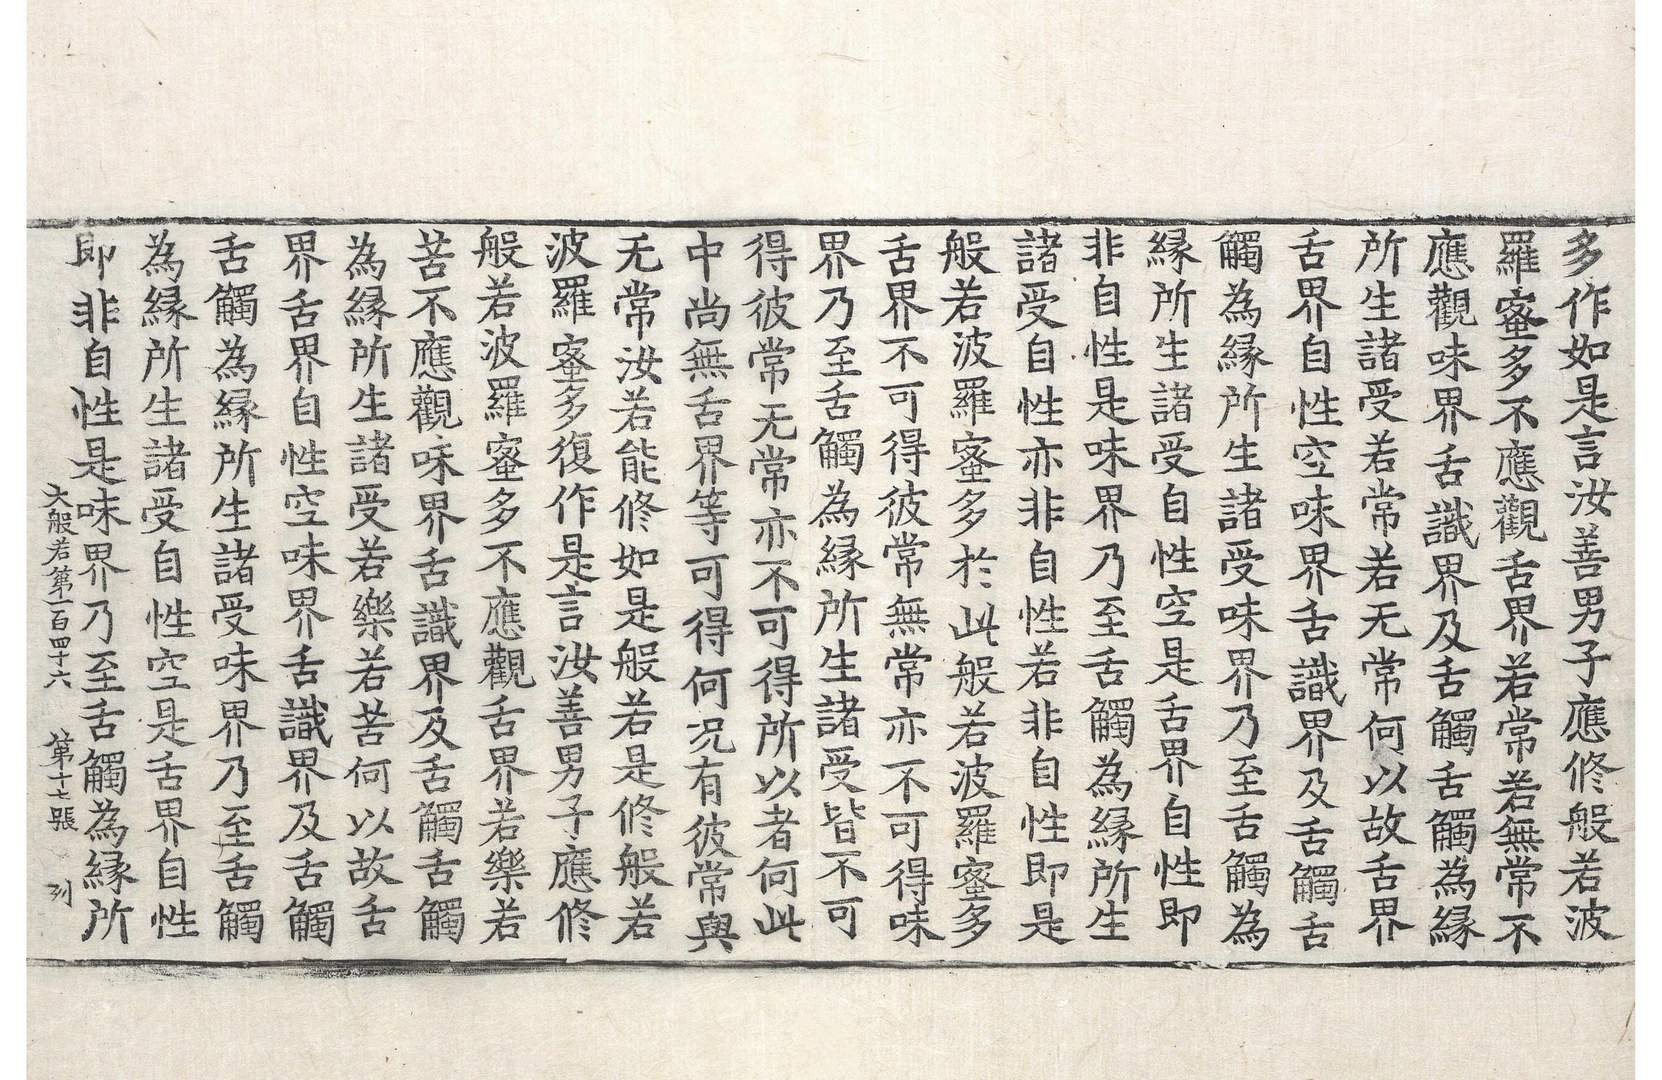 多作如是言汝善男子應修般若波
羅蜜多不應觀舌界若常若無常不
應觀味界舌識界及舌觸舌觸為緣
所生諸受若常若无常何以故舌界
舌界自性空味界舌識界及舌觸舌
觸為緣所生諸受味界乃至舌觸為
緣所生諸受自性空是舌界自性即
非自性是味界乃至舌觸為緣所生
諸受自性亦非自性若非自性即是
般若波羅蜜多於此般若波羅蜜多
舌界不可得彼常無常亦不可得味
界乃至舌觸為緣所生諸受皆不可
得彼常无常亦不可得所以者何此
中尚無舌界等可得何況有彼常與
无常汝若能修如是般若是修般若
波羅蜜多復作是言汝善男子應修
般若波羅蜜多不應觀舌界若樂若
苦不應觀味界舌識界及舌觸舌觸
為緣所生諸受若樂若苦何以故舌
界舌界自性空味界舌識界及舌觸
舌觸為緣所生諸受味界乃至舌觸
為緣所生諸受自性空是舌界自性
即非自性是味界乃至舌觸為緣所
大般若第一百四十六 第十七張 列